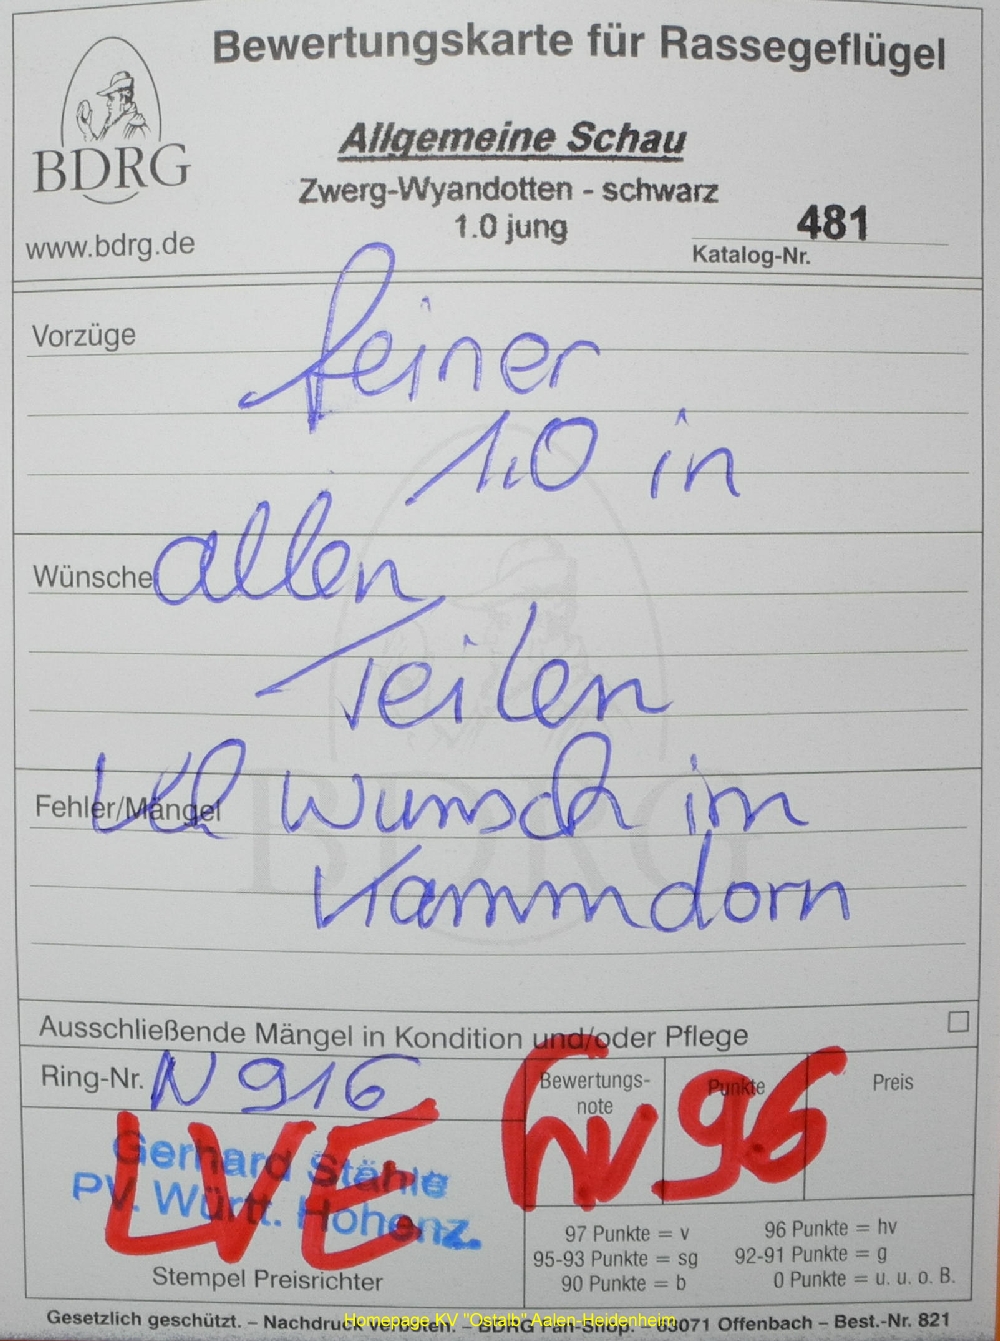 Bewertungskarte für Rassegeflügel
BDRG
www.bdrg.de
Allgemeine Schau
Zwerg-Wyandotten - schwarz
1.0 jung
481
Katalog-Nr.
Vorzüge
feiner
1,0 in
Wünsche allen
Teilen
Fehler/Mängel Wunsch im
Kammdorn
BDRG
Ausschließende Mängel in Kondition und/oder Pflege
Ring-Nr. N 916
Bewertungs-
note
hv
Punkte
96
Preis
LVE
Gerhard Stähle
PV. Württ. Hohenz.
Stempel Preisrichter
97 Punkte = v
96 Punkte = hv
95-93 Punkte = sg
92-91 Punkte = g
90 Punkte = b
0 Punkte = u. u. o. B.
Gesetzlich geschützt. – Nachdruck verboten. – BDRG Fan-Shop. – 63071 Offenbach – Best.-Nr. 821
Homepage KV "Ostalb" Aalen-Heidenheim